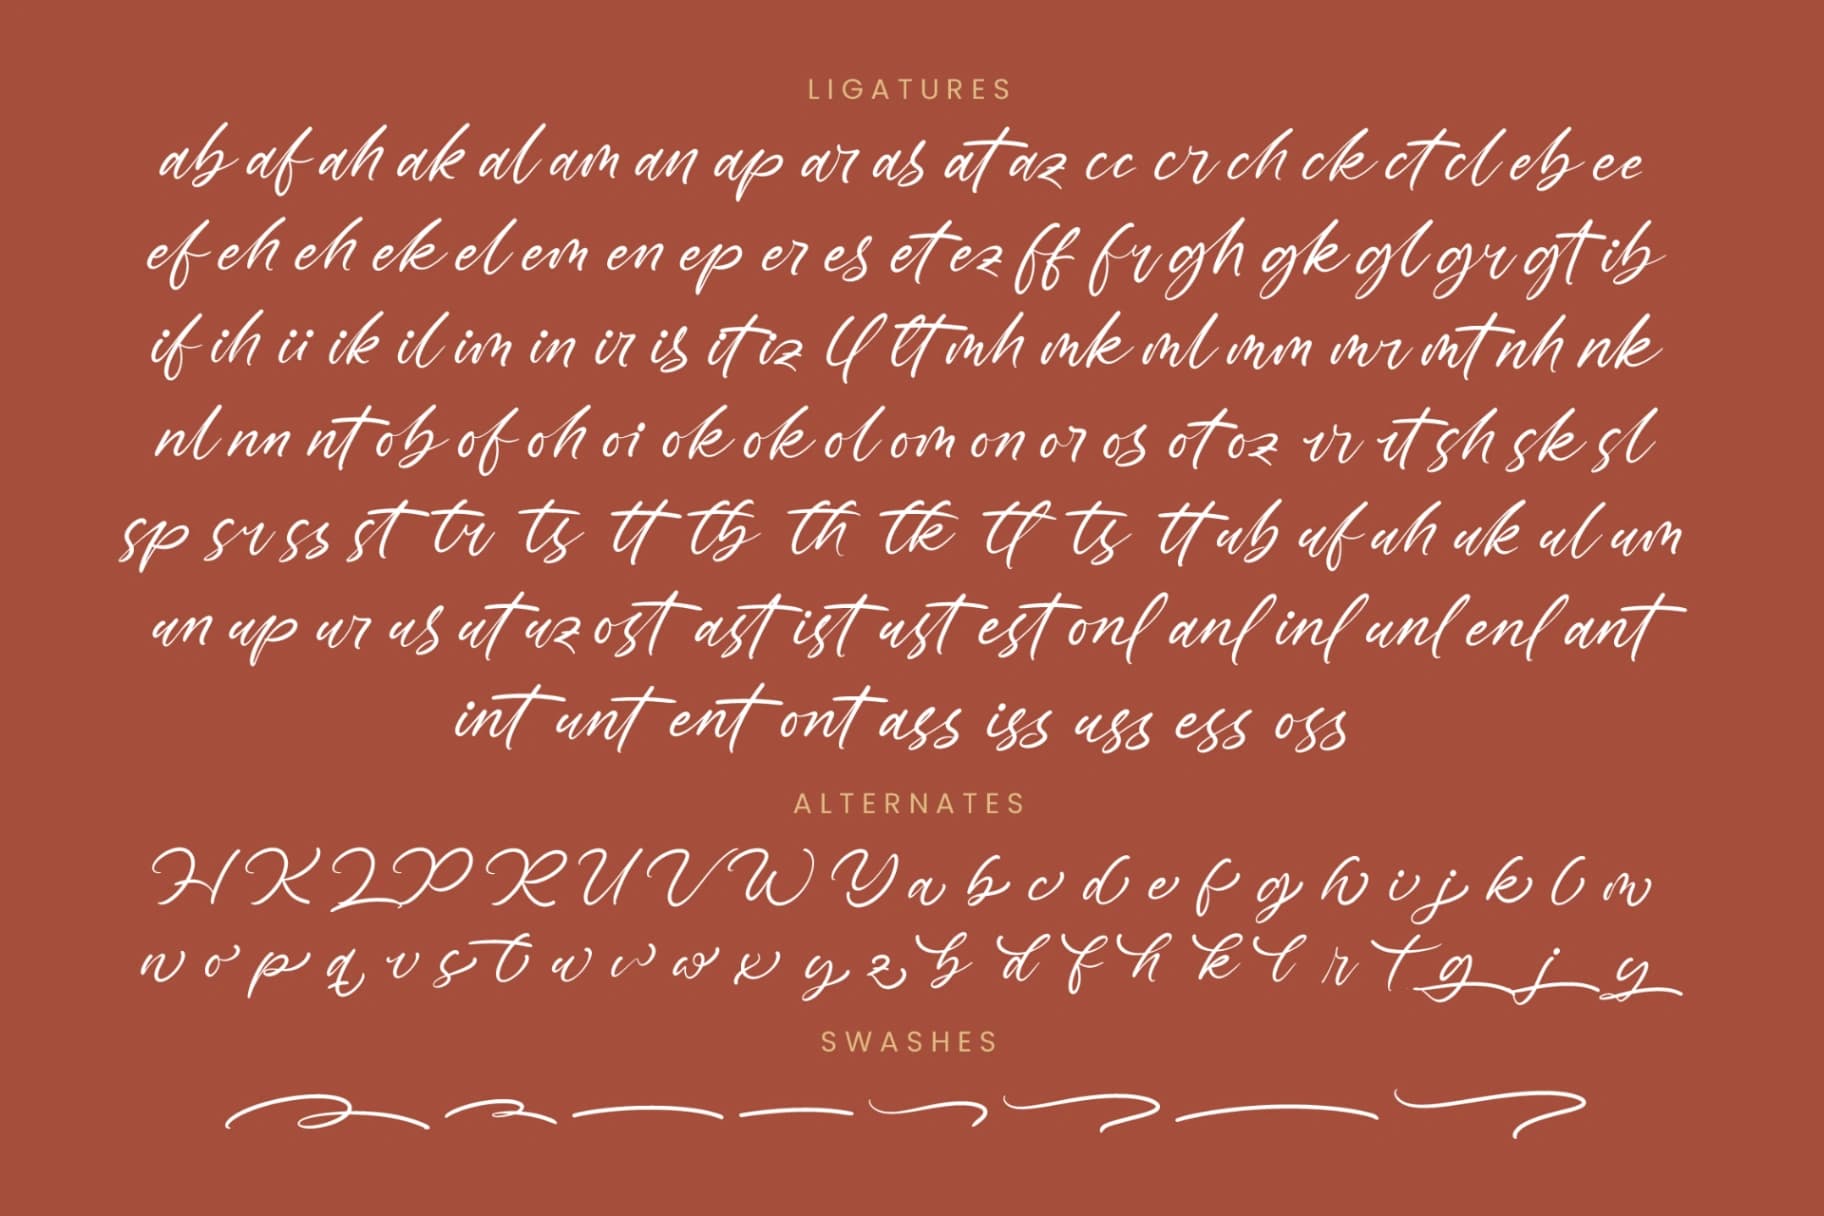 LIGATURES
ab af ah ak al am an ap ar as at az cc cr ch ck ct cl eb ee
ef eh eh ek el em en ep er es et ez ff fr gh gk gl gr gt ib
if ih ii ik il im in ir is it iz lf lt mh mk ml mm mr mt nh nk
nl nn nt ob of oh oi ok ok ol om on or os ot oz rr rt sh sk sl
sp sr ss st tr ts tt tb th tk tl ts tt ub uf uh uk ul um
un up ur us ut uz ost ast ist ust est onl anl inl unl enl ant
int unt ent ont ass iss uss ess oss
ALTERNATES
H K L P R U V W Y a b c d e f g h i j k l m
n o p q r s t u v w x y z b d f h k l r t g j y
SWASHES